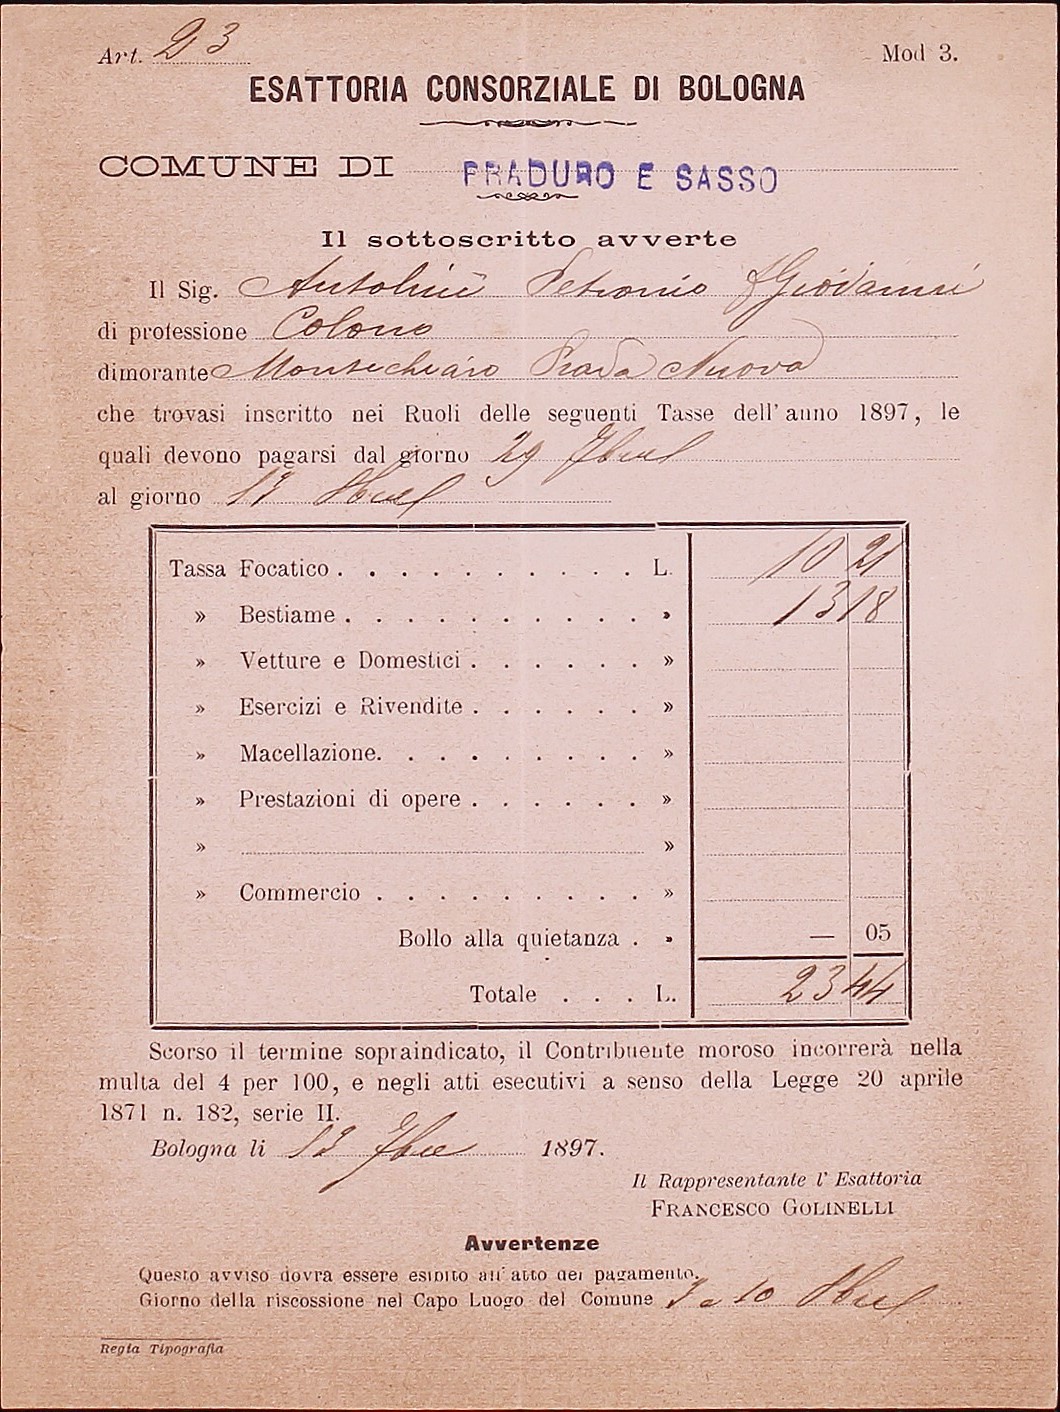 Art. 23
Mod 3.
ESATTORIA CONSORZIALE DI BOLOGNA
COMUNE DI PRADURO E SASSO
Il sottoscritto avverte
Il Sig. Antolini Petronio f Giovanni
di professione Colono
dimorante Montechiaro Nuova
che trovasi inscritto nei Ruoli delle seguenti Tasse dell'anno 1897, le
quali devono pagarsi dal giorno 29
al giorno
Tassa Focatico . . . . . . . . . . L. 10 21
» Bestiame . . . . . . . . . . » 13 18
» Vetture e Domestici . . . . . . »
» Esercizi e Rivendite . . . . . . »
» Macellazione. . . . . . . . . »
» Prestazioni di opere . . . . . . »
» »
» Commercio . . . . . . . . . »
Bollo alla quietanza . » — 05
Totale . . . L. 23 44
Scorso il termine sopraindicato, il Contribuente moroso incorrerà nella
multa del 4 per 100, e negli atti esecutivi a senso della Legge 20 aprile
1871 n. 182, serie II.
Bologna li 1897.
Il Rappresentante l' Esattoria
FRANCESCO GOLINELLI
Avvertenze
Questo avviso dovra essere esibito all'atto del pagamento.
Giorno della riscossione nel Capo Luogo del Comune 10
Regia Tipografia